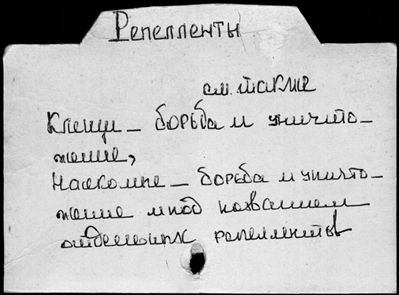 Репелленты
см. также
Клещи — борьба и уничто-
жение,
Насекомые — борьба и уничто-
жение и под названием
отдельных репеллентов